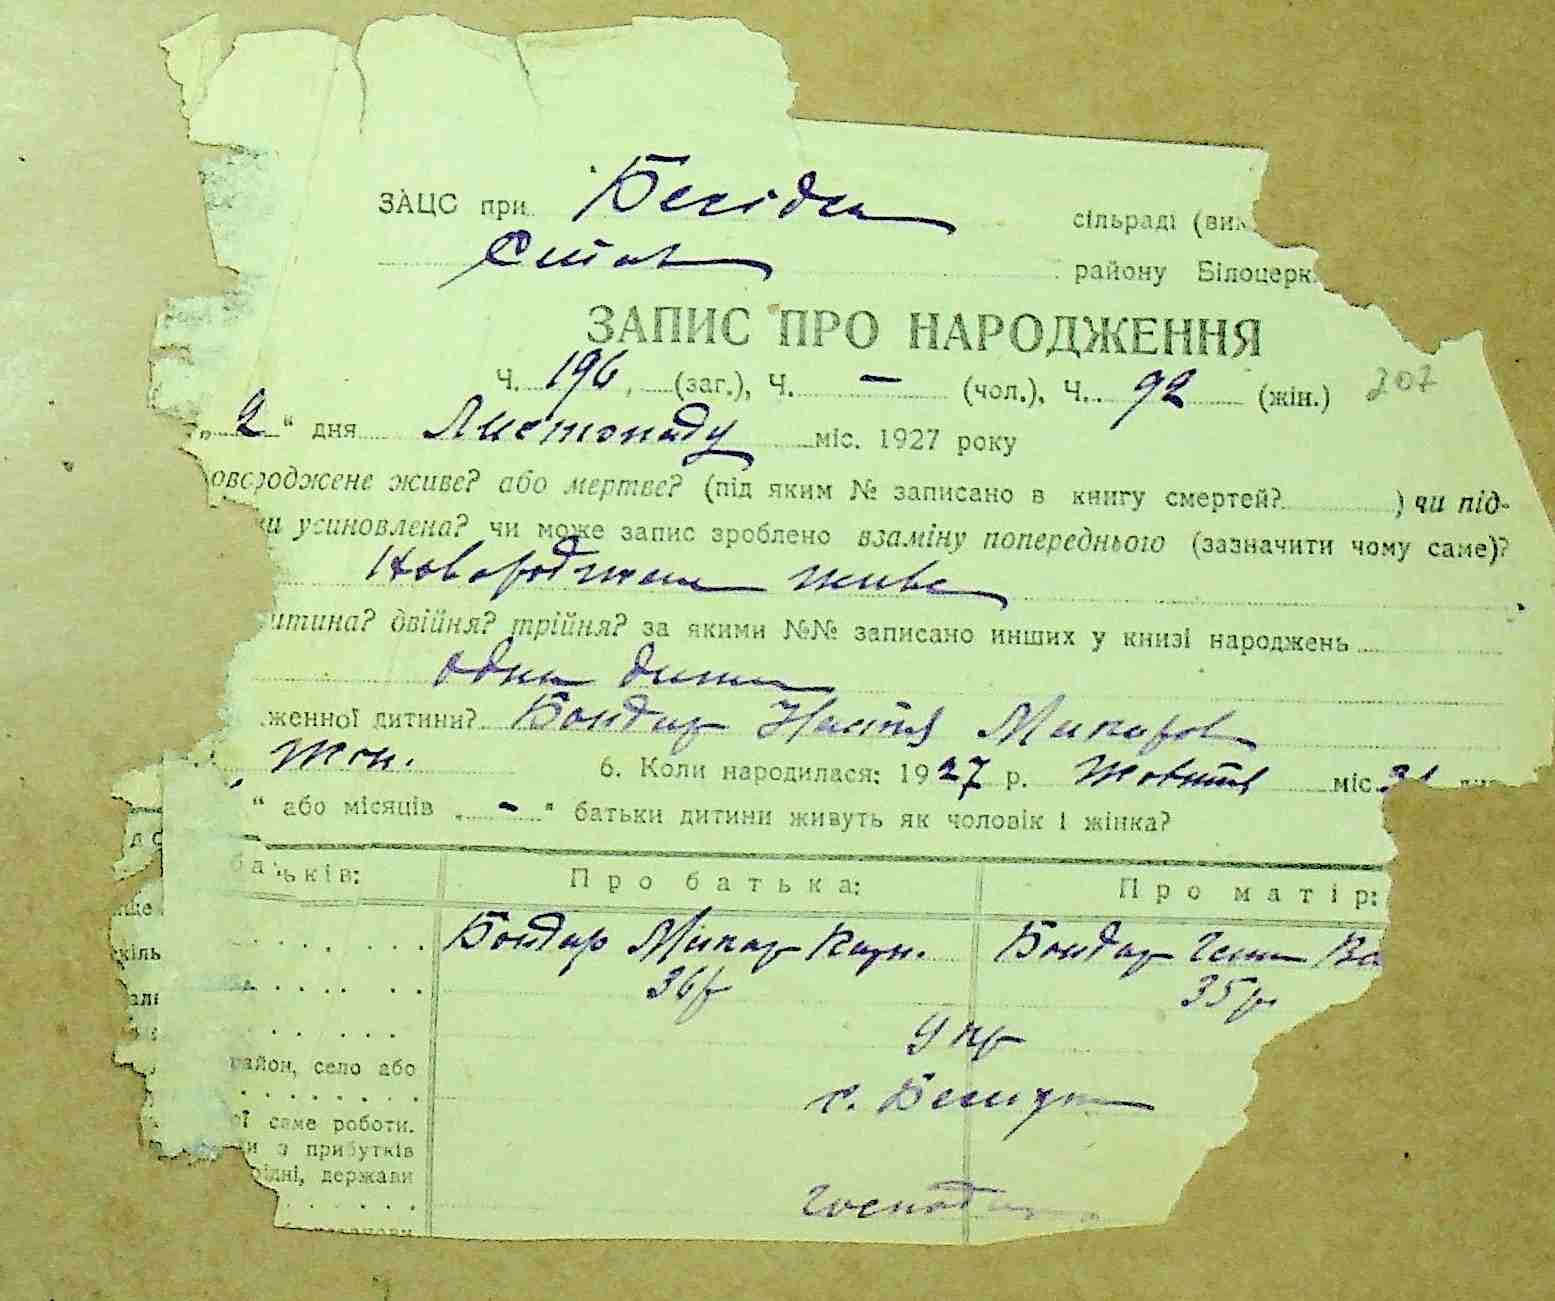 ЗАЦС при Бесідка сільраді (вик
Став району Білоцерк
ЗАПИС ПРО НАРОДЖЕННЯ
Ч. 196, (заг.), Ч. — (чол.), Ч. 92 (жін.) 207
„2“ дня Листопаду міс. 1927 року
овороджене живе? або мертве? (під яким № записано в книгу смертей? ) чи під-
чи усиновлена? чи може запис зроблено взаміну попереднього (зазначити чому саме)?
Новороджене живе
итина? двійня? трійня? за якими №№ записано инших у книзі народжень
одна дитина
женної дитини? Бондар Настя Макаров
жін. 6. Коли народилася: 1927 р. Жовтня міс. 31
“ або місяців „ - “ батьки дитини живуть як чоловік і жінка?
батьків: Про батька: Про матір:
Бондар Макар Карн. Бондар Ва
скіль
36р 35р
Укр
район, село або
с. Бесидка
ої саме роботи.
и з прибутків
рідні, держави
Господар